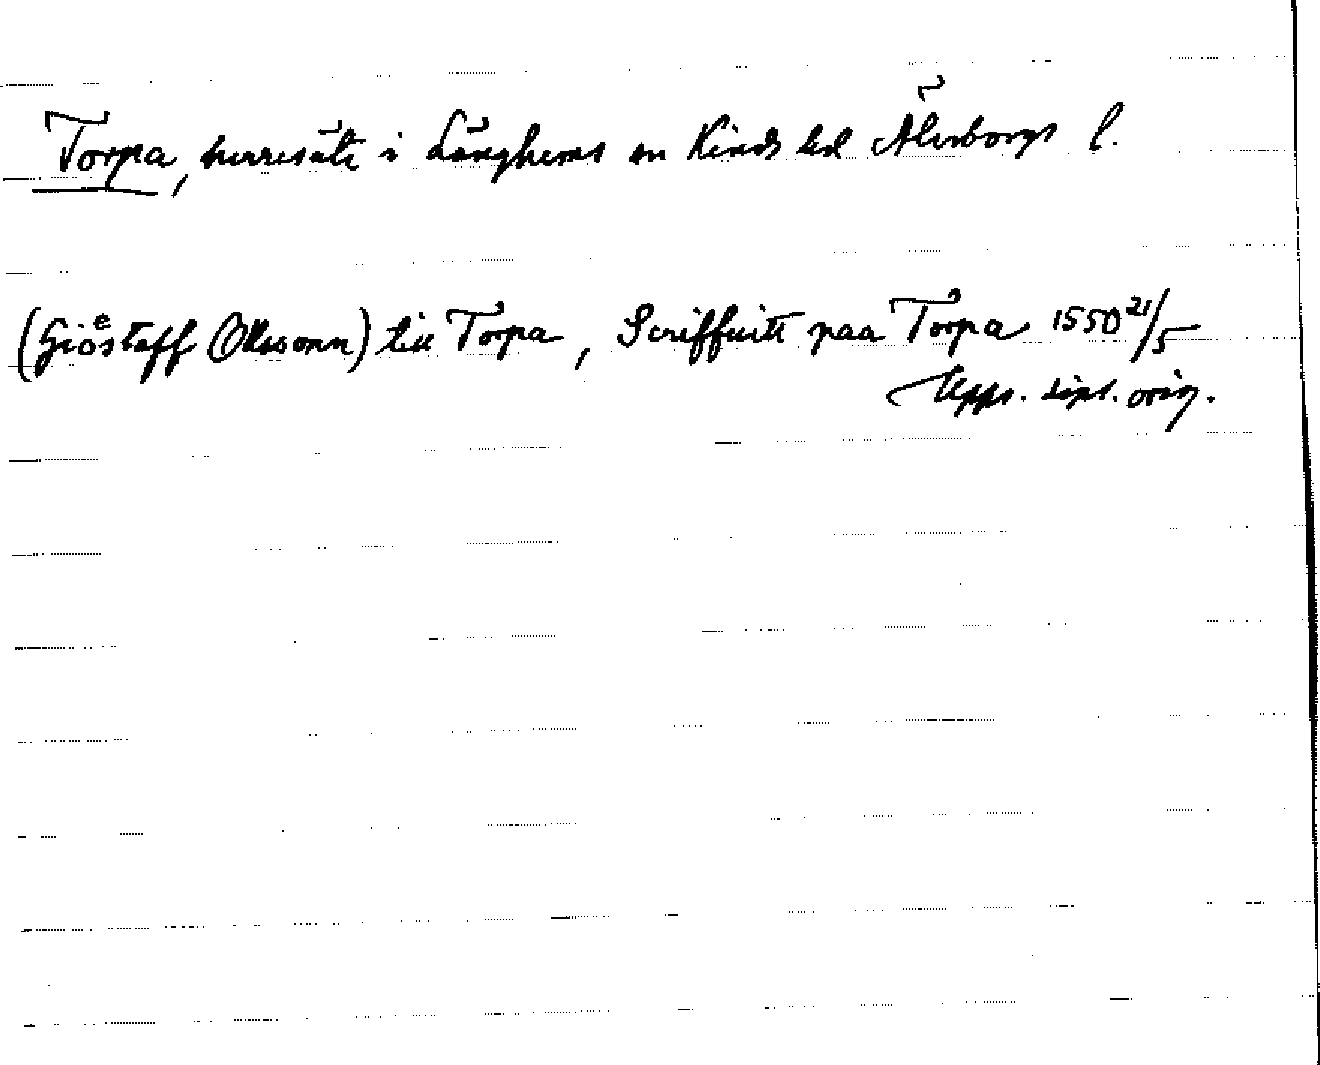 Torpa, herresäte i Länghems sn Kinds hd Älvsborgs l.
(Giöstaff Olssonn) till Torpa, Scriffuitt paa Torpa 1550 21/5
Upps. dipl. orig.